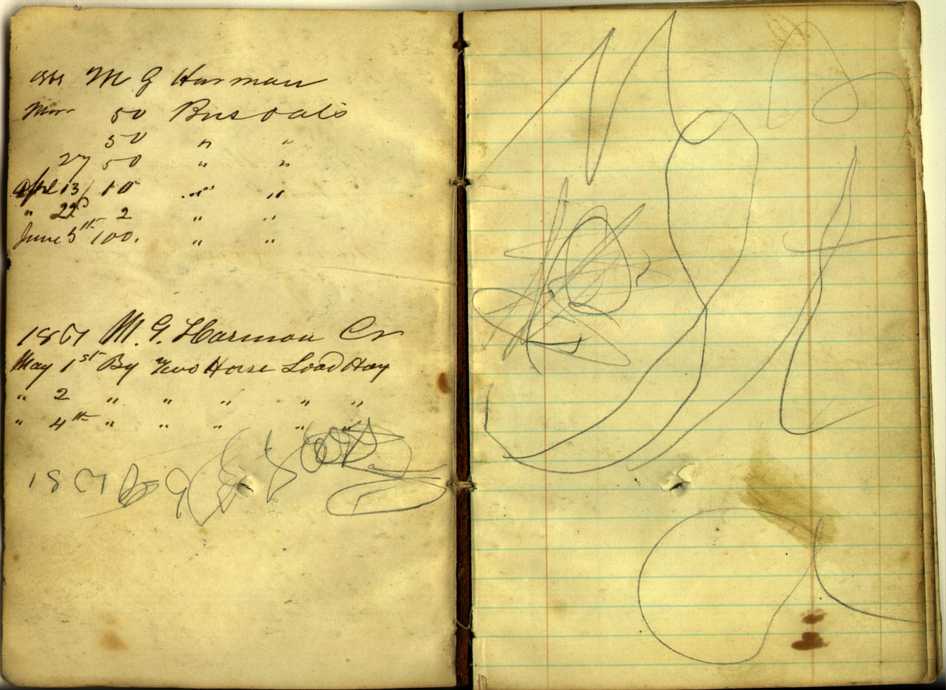 M G Harman
50 Bus Oats
50 " "
27 50 " "
April 13/ 10 " "
" 22d 2 " "
June 5th 100. " "
1861 M. G. Harman Cr
May 1st By Two Horse Load Hay
" 2 " " " " "
" 4th " " " " "
1861